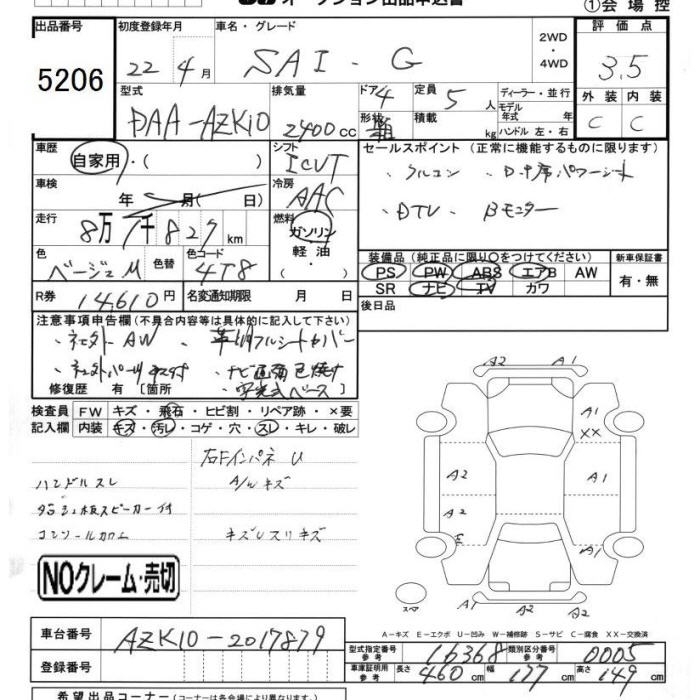 オークション出品申込書
①会場控
出品番号 初度登録年月 車名・グレード 2WD・4WD 評価点
5206 22年4月 SAI - G 3.5
型式 排気量 ドア 4 定員 5人 ディーラー・並行 外装 内装
DAA-AZK10 2400cc 形状 積載 kg モデル年式 年式 ハンドル 左・右 C C
車歴 自家用・( ) シフト ICVT セールスポイント(正常に機能するものに限る)
車検 年 月( 日) 冷房 AAC ・アルコン ・D中席パワーシート
走行 8万1千827km 燃料 ガソリン 軽油 ・DTV ・Bモニター
色 ベージュM 色替 色コード 4T8
装備品(純正品に限り○をつけてください) 新車保証書
PS PW ABS エアB AW 有・無
SR ナビ TV カワ
R券 14,610円 名変通知期限 月 日 後日品
注意事項申告欄(不具合内容等は具体的に記入して下さい)
・社外AW ・革調フルシートカバー
・社外パーツ ・ナビ画面日焼け
修復歴 有 [箇所
検査員 FW キズ・飛石・ヒビ割・リペア跡・×要
記入欄 内装 キズ・汚レ・コゲ・穴・スレ・キレ・破レ
右Fインパネ U
ハンドルスレ A/Wキズ
スピーカー付
コンソール キズ スリキズ
NOクレーム・売切
A2 A1
A1
XX
A2 A1
A2
E A1
スペア A1 A2 A2
A-キズ E-エクボ U-凹み W-補修跡 S-サビ C-腐食 XX-交換済
車台番号 AZK10-2017879
型式指定番号 参考 16368 類別区分番号 参考 0005
登録番号 車庫証明用 参考 長さ 460cm 幅 177cm 高さ 149cm
希望出品コーナー(コーナーは各会場により異なります)